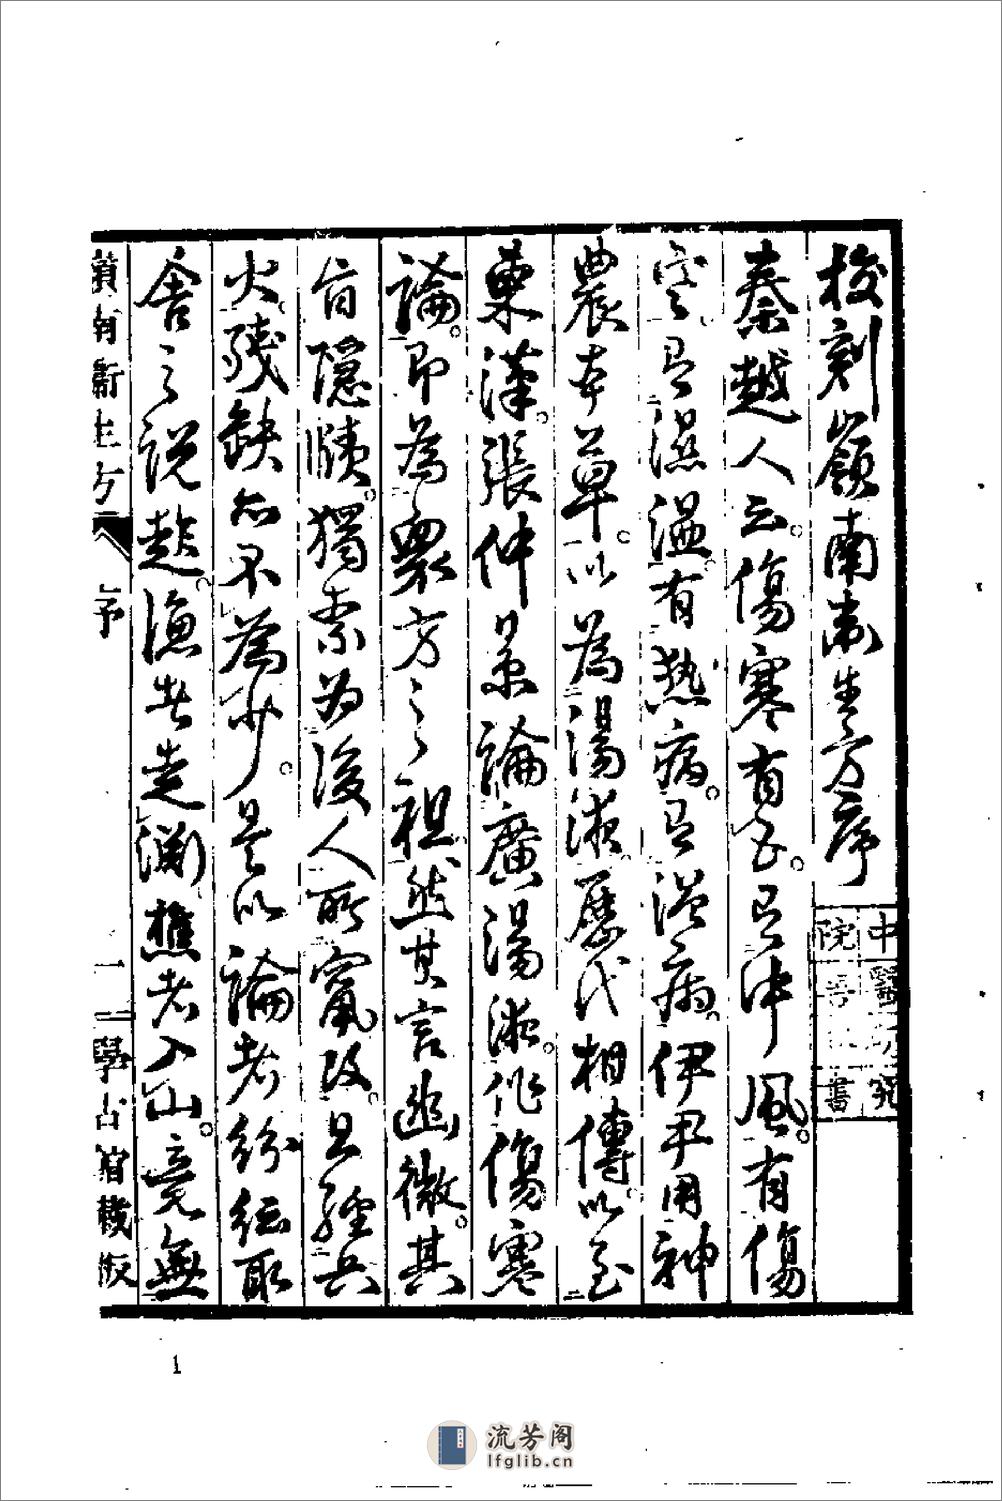 校刻嶺南衛生方序
中醫研究
院書
秦越人云。傷寒有五。有中風。有傷
寒。有濕溫。有熱病。有溫病。伊尹用神
農本草。以為湯液。歷代相傳。以至
東漢。張仲景論廣湯液。作傷寒
論。即為眾方之祖。然其言幽微。其
旨隱賾。獨為後人所竄改。且經兵
火。殘缺亦不為少。是以論者紛紜。取
舍之說。漁者走淵。樵者入山。竟無
嶺南衛生方 序 一 學古館藏版
1
流芳阁
lfglib.cn